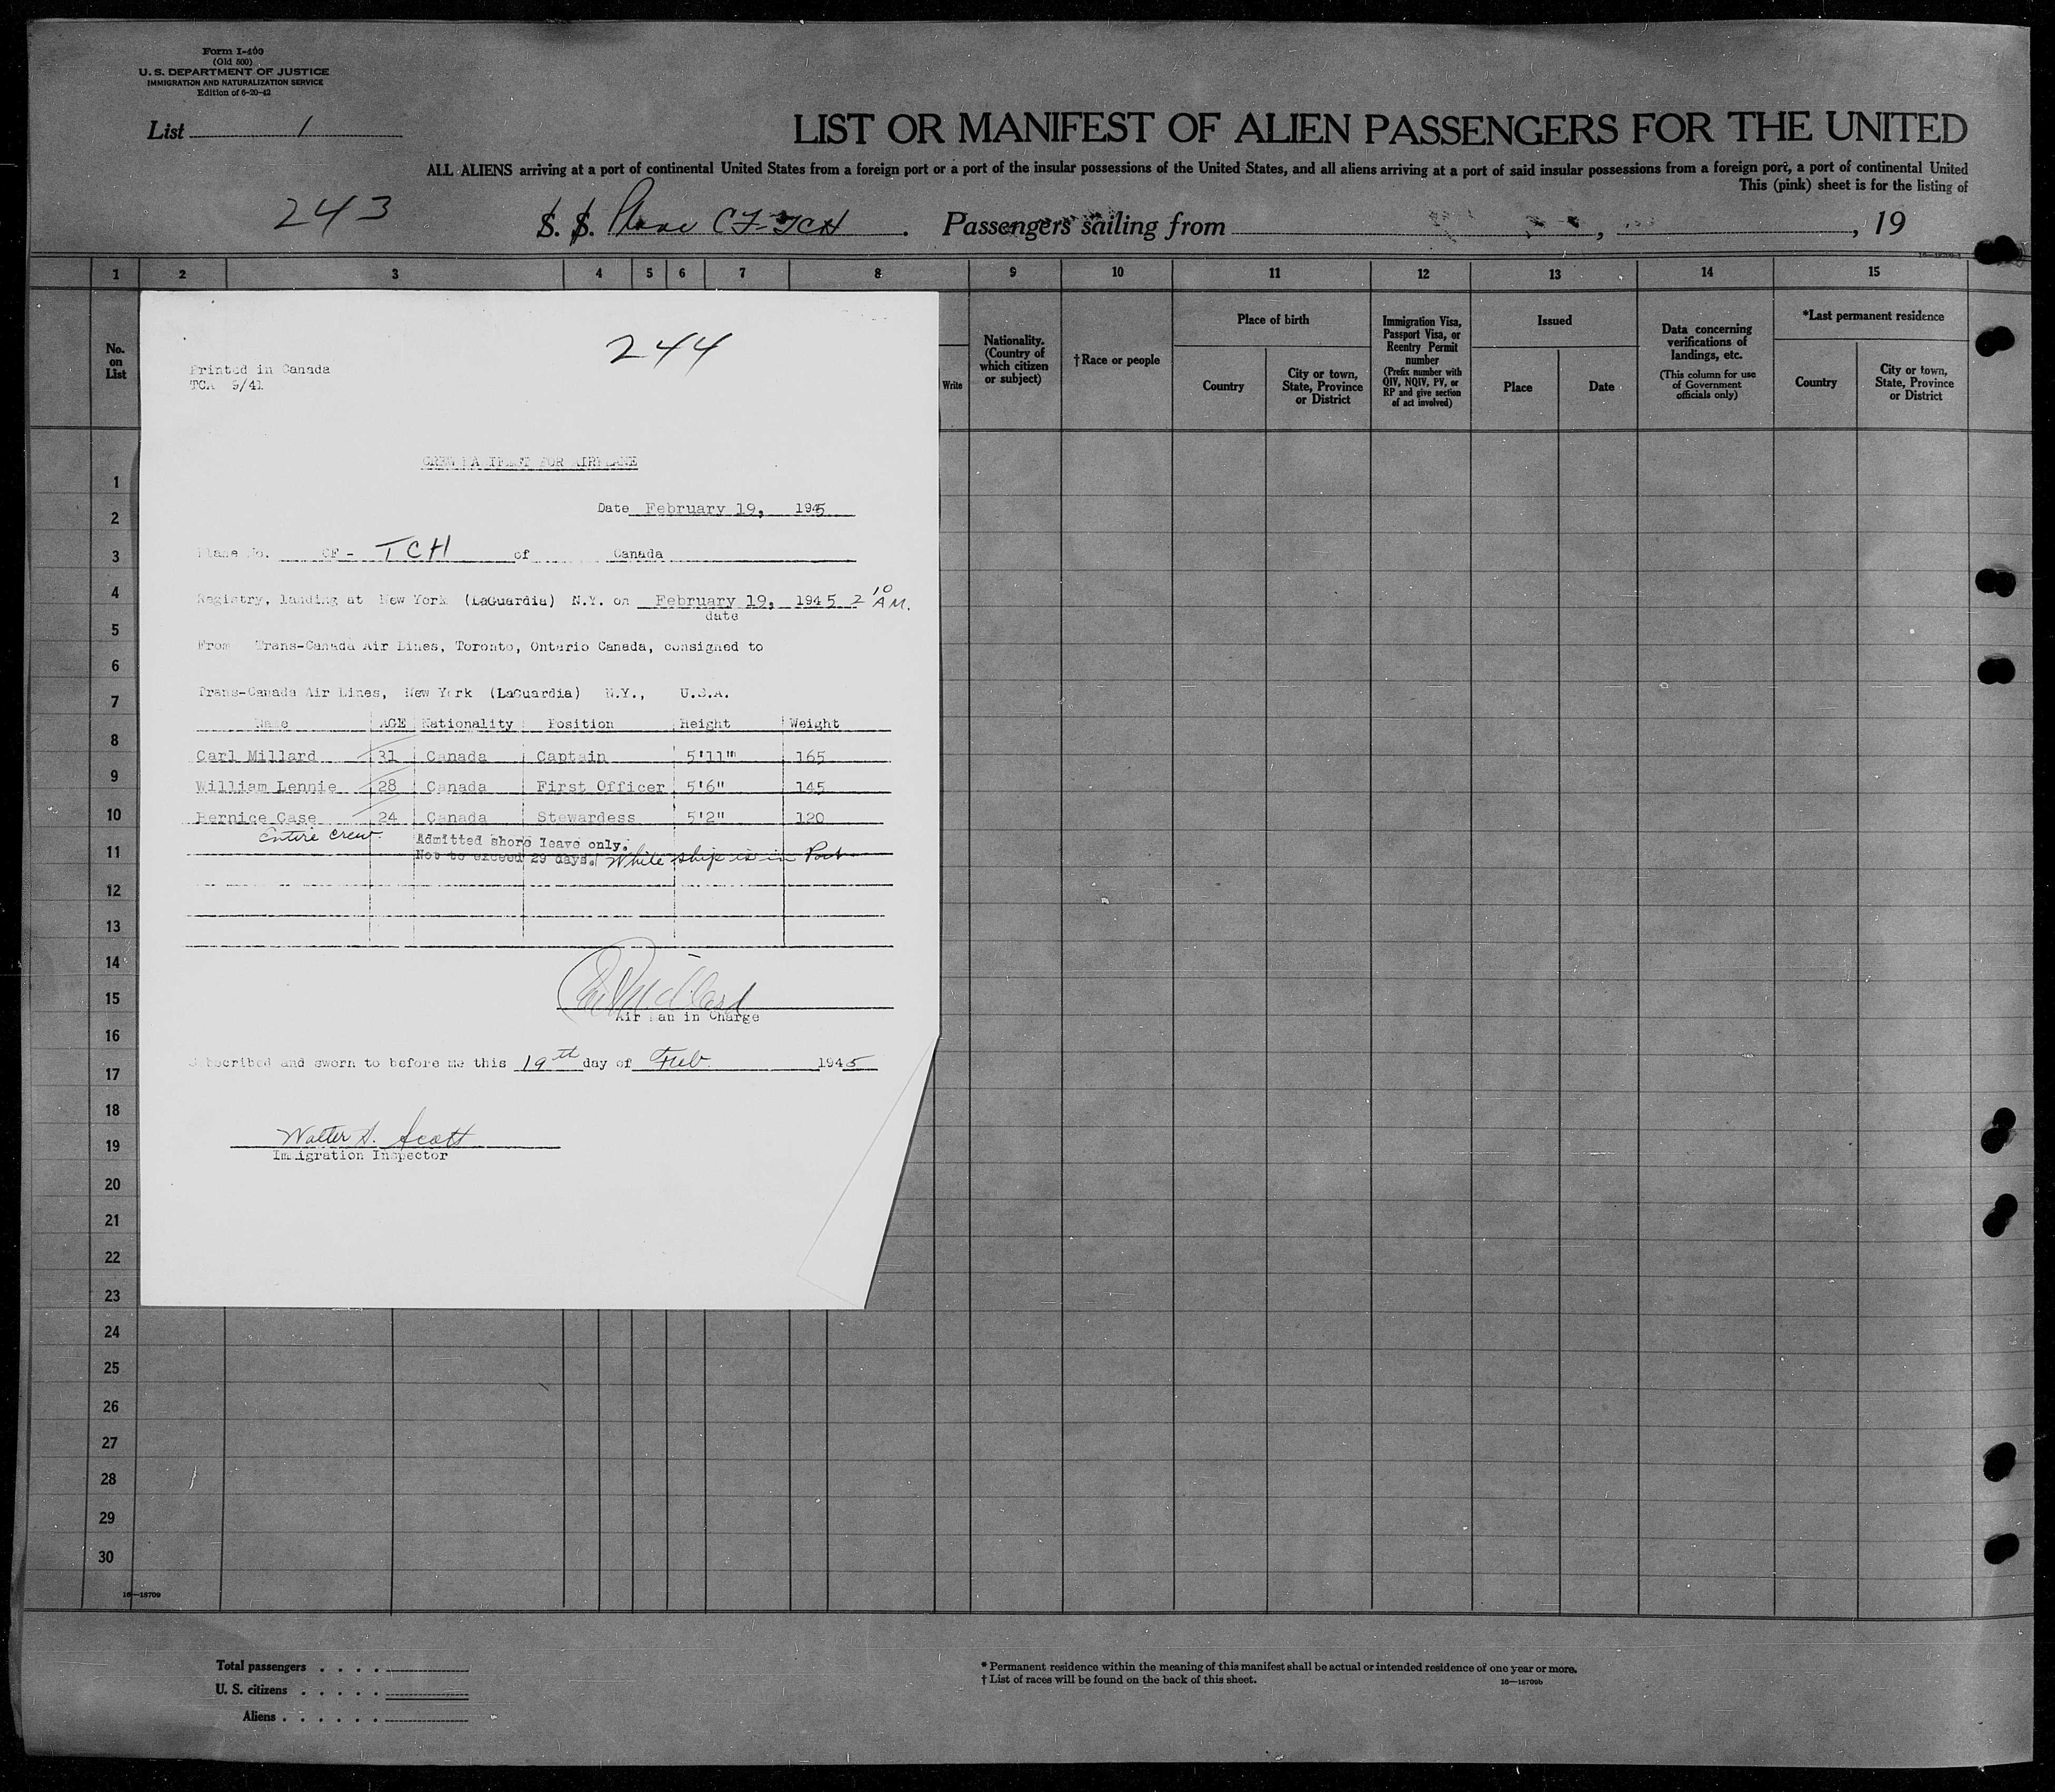 Form I-400
(Old 500)
U. S. DEPARTMENT OF JUSTICE
IMMIGRATION AND NATURALIZATION SERVICE
Edition of 6-20-42
List 1
LIST OR MANIFEST OF ALIEN PASSENGERS FOR THE UNITED
ALL ALIENS arriving at a port of continental United States from a foreign port or a port of the insular possessions of the United States, and all aliens arriving at a port of said insular possessions from a foreign port, a port of continental United
This (pink) sheet is for the listing of
243
S. S. Plane CF-TCH . Passengers sailing from , , 19
1 2 3 4 5 6 7 8 9 10 11 12 13 14 15
No. on List
Write
Nationality. (Country of which citizen or subject)
†Race or people
Place of birth
Country
City or town, State, Province or District
Immigration Visa, Passport Visa, or Reentry Permit number
(Prefix number with QIV, NQIV, PV, or RP and give section of act involved)
Issued
Place
Date
Data concerning verifications of landings, etc.
(This column for use of Government officials only)
*Last permanent residence
Country
City or town, State, Province or District
244
Printed in Canada
TCA 9/41
CREW MANIFEST FOR AIRPLANE
Date February 19, 1945
Plane No. CF - TCH of Canada
Registry, landing at New York (LaGuardia) N.Y. on February 19, 1945 2 10 AM.
date
From Trans-Canada Air Lines, Toronto, Ontario Canada, consigned to
Trans-Canada Air Lines, New York (LaGuardia) N.Y., U.S.A.
Name AGE Nationality Position Height Weight
Carl Millard 31 Canada Captain 5'11" 165
William Lennie 28 Canada First Officer 5'6" 145
Bernice Case 24 Canada Stewardess 5'2" 120
Entire crew. Admitted shore leave only.
Not to exceed 29 days. While ship is in Port
Carl Millard
Air Man in Charge
Subscribed and sworn to before me this 19th day of Feb 1945
Walter A. Scott
Immigration Inspector
1
2
3
4
5
6
7
8
9
10
11
12
13
14
15
16
17
18
19
20
21
22
23
24
25
26
27
28
29
30
16—18709
Total passengers . . . .
U. S. citizens . . . . .
Aliens . . . . . .
* Permanent residence within the meaning of this manifest shall be actual or intended residence of one year or more.
† List of races will be found on the back of this sheet.
16—18709b